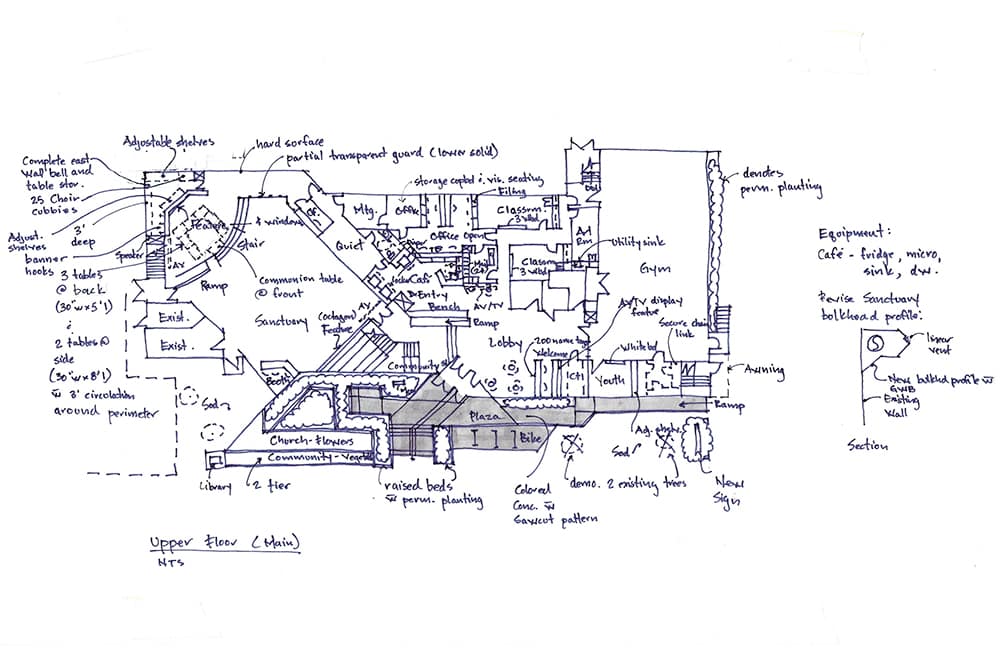 Adjustable shelves
hard surface
partial transparent guard (lower solid)
Complete east
Wall bell and
table stor.
25 Choir
cubbies
Adjust.
shelves
3'
deep
banner
hooks
Speaker
AV
3 tables
@ back
(30"w x 5'l)
&
2 tables @
side
(30"w x 8'l)
w 3' circulation
around perimeter
Feature
& windows
Stair
Ramp
Communion table
@ front
Exist.
Exist.
Sanctuary
(octagon)
Feature
AV
Of.
Mtg.
Office
Quiet
storage
seating
Filing
Classrm
3 wbd
Office Open
Classrm
3 wbd
Café
Entry
Bench
AV/TV
Ramp
Art
Rm
Utility sink
Gym
Lobby
AV/TV display
feature
200 name tags
Welcome
Secure chain
link
White bd
Youth
Awning
Ramp
Community
Booth
Sod
Church-Flowers
Community-Vegeta
Library
2 tier
raised beds
w perm. planting
Plaza
Bike
Colored
Conc. w
Sawcut pattern
demo. 2 existing trees
Sod
New
Sign
denotes
perm. planting
Equipment:
Café - fridge, micro,
sink, dw.
Revise Sanctuary
bulkhead profile:
linear
vent
New bulkhd profile w
GWB
Existing
Wall
Section
Upper Floor (Main)
NTS